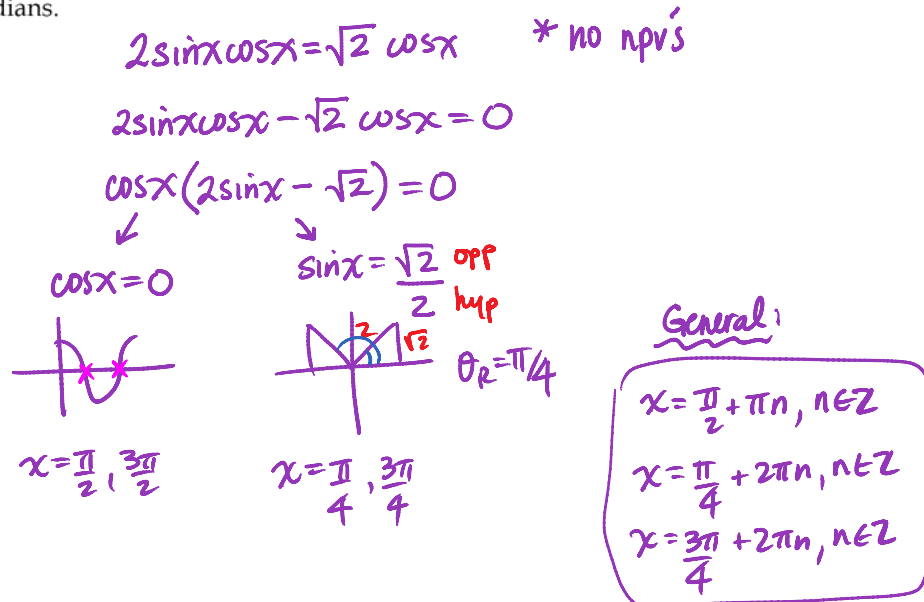 dians.
2sinxcosx=√2 cosx * no npv's
2sinxcosx-√2 cosx=0
cosx(2sinx-√2)=0
cosx=0
sinx=√2/2 opp hyp
2 √2
θR=π/4
x=π/2, 3π/2
x=π/4, 3π/4
General:
x=π/2+πn, n∈Z
x=π/4+2πn, n∈Z
x=3π/4+2πn, n∈Z